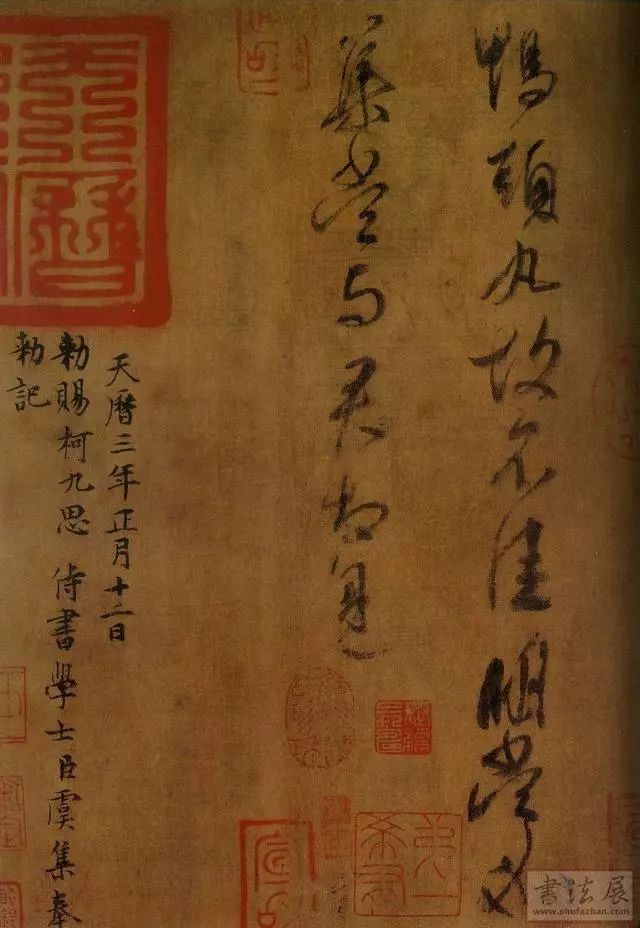 鴨頭丸故不佳明當必
集當与君相見
天曆三年正月十二日
勑賜柯九思侍書學士臣虞集奉
勑記
天曆
書法展
www.shufazhan.com